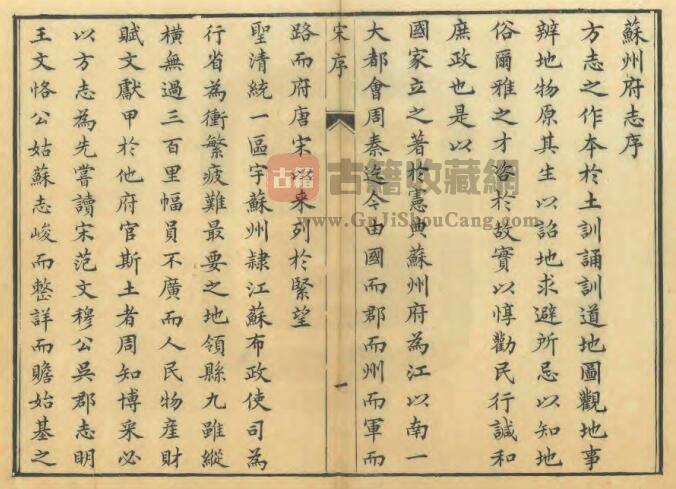 蘇州府志序
方志之作本於土訓誦訓道地圖觀地事
辨地物原其生以詔地求避所忌以知地
俗爾雅之才咨於故實以惇勸民行諴和
庶政也是以
國家立之著於憲典蘇州府為江以南一
大都會周秦迄今由國而郡而州而軍而
宋序
一
路而府唐宋以來列於緊望
聖清統一區宇蘇州隸江蘇布政使司為
行省為衝繁疲難最要之地領縣九雖縱
橫無過三百里幅員不廣而人民物產財
賦文獻甲於他府官斯土者周知博采必
以方志為先嘗讀宋范文穆公吳郡志明
王文恪公姑蘇志峻而整詳而贍始基之
古籍
古籍收藏網
www.GuJiShouCang.com